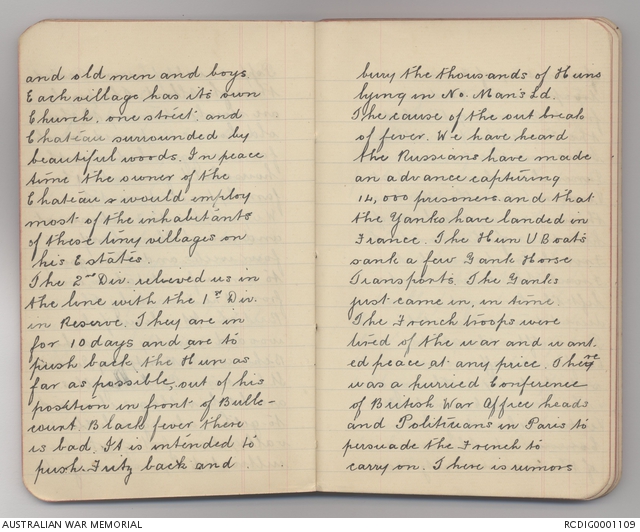 and old men and boys.
Each village has its own
Church, one street, and
Chateau surrounded by
beautiful woods. In peace
time the owner of the
Chateau s would employ
most of the inhabitants
of these tiny villages on
his Estates.
The 2nd Div. relieved us in
the line with the 1st Div.
in Reserve. They are in
for 10 days and are to
push back the Hun as
far as possible, out of his
position in front of Bulle-
court. Black fever there
is bad. It is intended to
push Fritz back and
bury the thousands of Huns
lying in No. Man's Ld.
The cause of the out break
of fever. We have heard
the Russians have made
an advance capturing
14,000 prisoners and that
the Yanks have landed in
France. The Hun U Boats
sank a few Yank Horse
Transports. The Yanks
just came in, in time.
The French troops were
tired of the war and want-
ed peace at any price. There
was a hurried Conference
of British War Office heads
and Politicians in Paris to
persuade the French to
carry on. There is rumors
AUSTRALIAN WAR MEMORIAL
RCDIG0001109